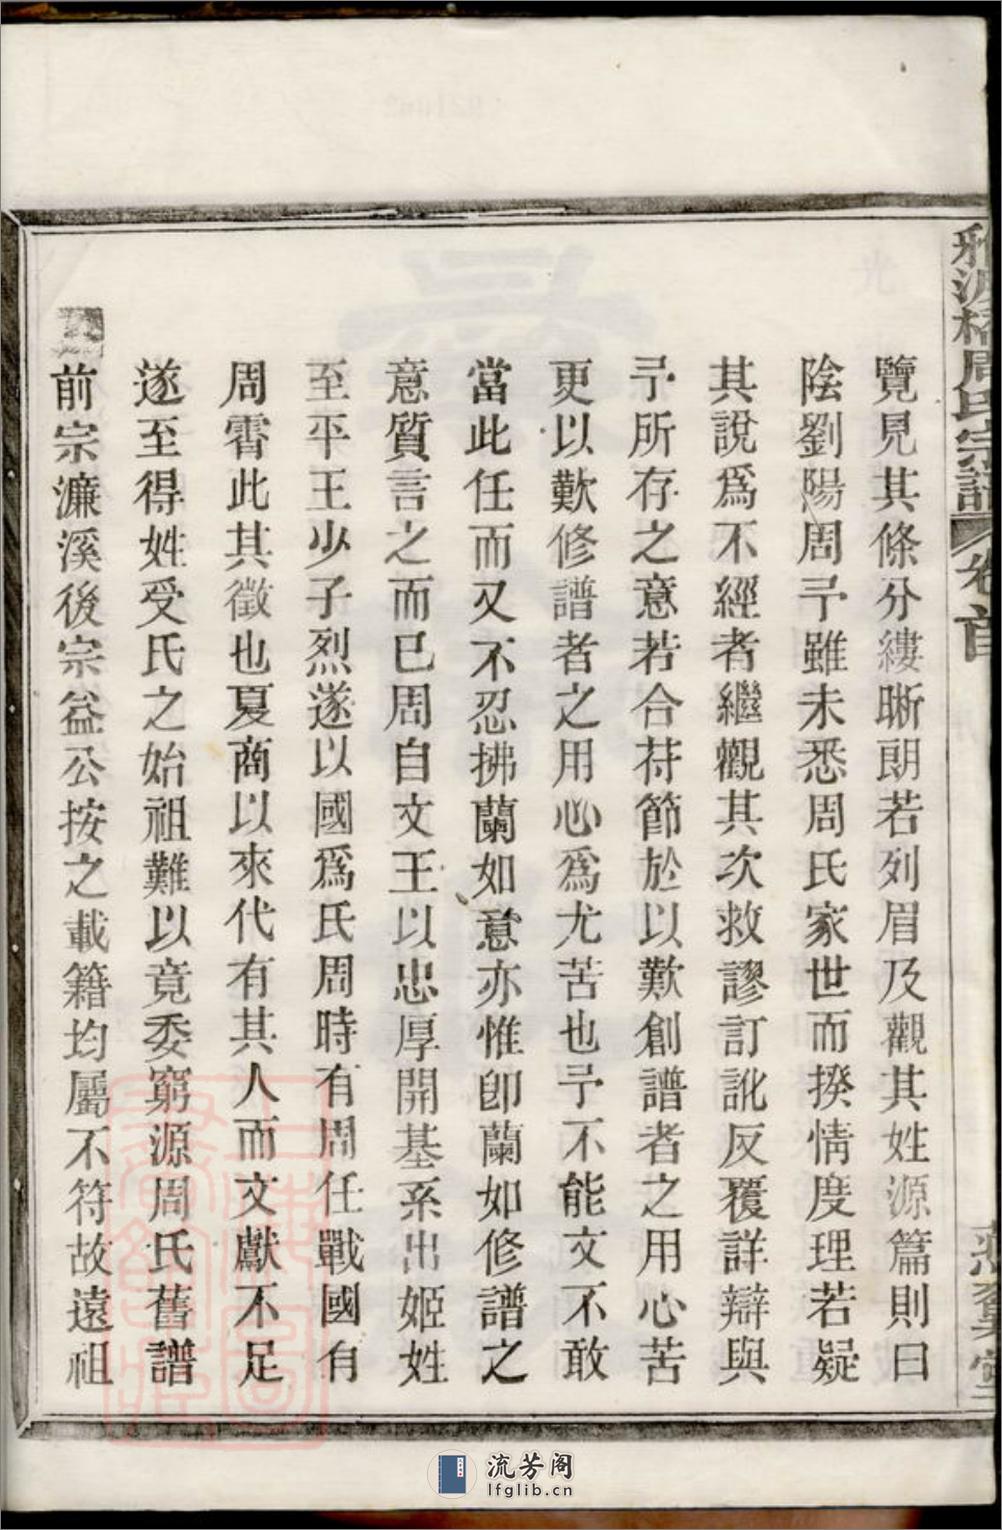 周氏宗譜 卷首
覽見其條分縷晰朗若列眉及觀其姓源篇則曰
陰劉陽周予雖未悉周氏家世而揆情度理若疑
其說爲不經者繼觀其次救謬訂訛反覆詳辯與
予所存之意若合苻節於以歎創譜者之用心苦
更以歎修譜者之用心爲尤苦也予不能文不敢
當此任而又不忍拂蘭如意亦惟卽蘭如修譜之
意質言之而已周自文王以忠厚開基系出姬姓
至平王少子烈遂以國爲氏周時有周任戰國有
周霄此其徵也夏商以來代有其人而文獻不足
遂至得姓受氏之始祖難以竟委窮源周氏舊譜
前宗濂溪後宗益公按之載籍均屬不符故遠祖
流芳阁
lfglib.cn